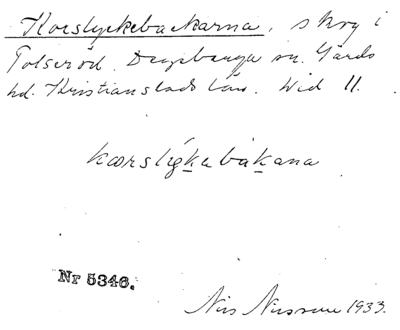 Korslyckebackarna, skog i
Tolseröd. Degeberga sn. Gärds
hd. Kristianstads län. Wid 11.
kærslýkabàkana
Nr 5346.
Nils Nilsson 1933.